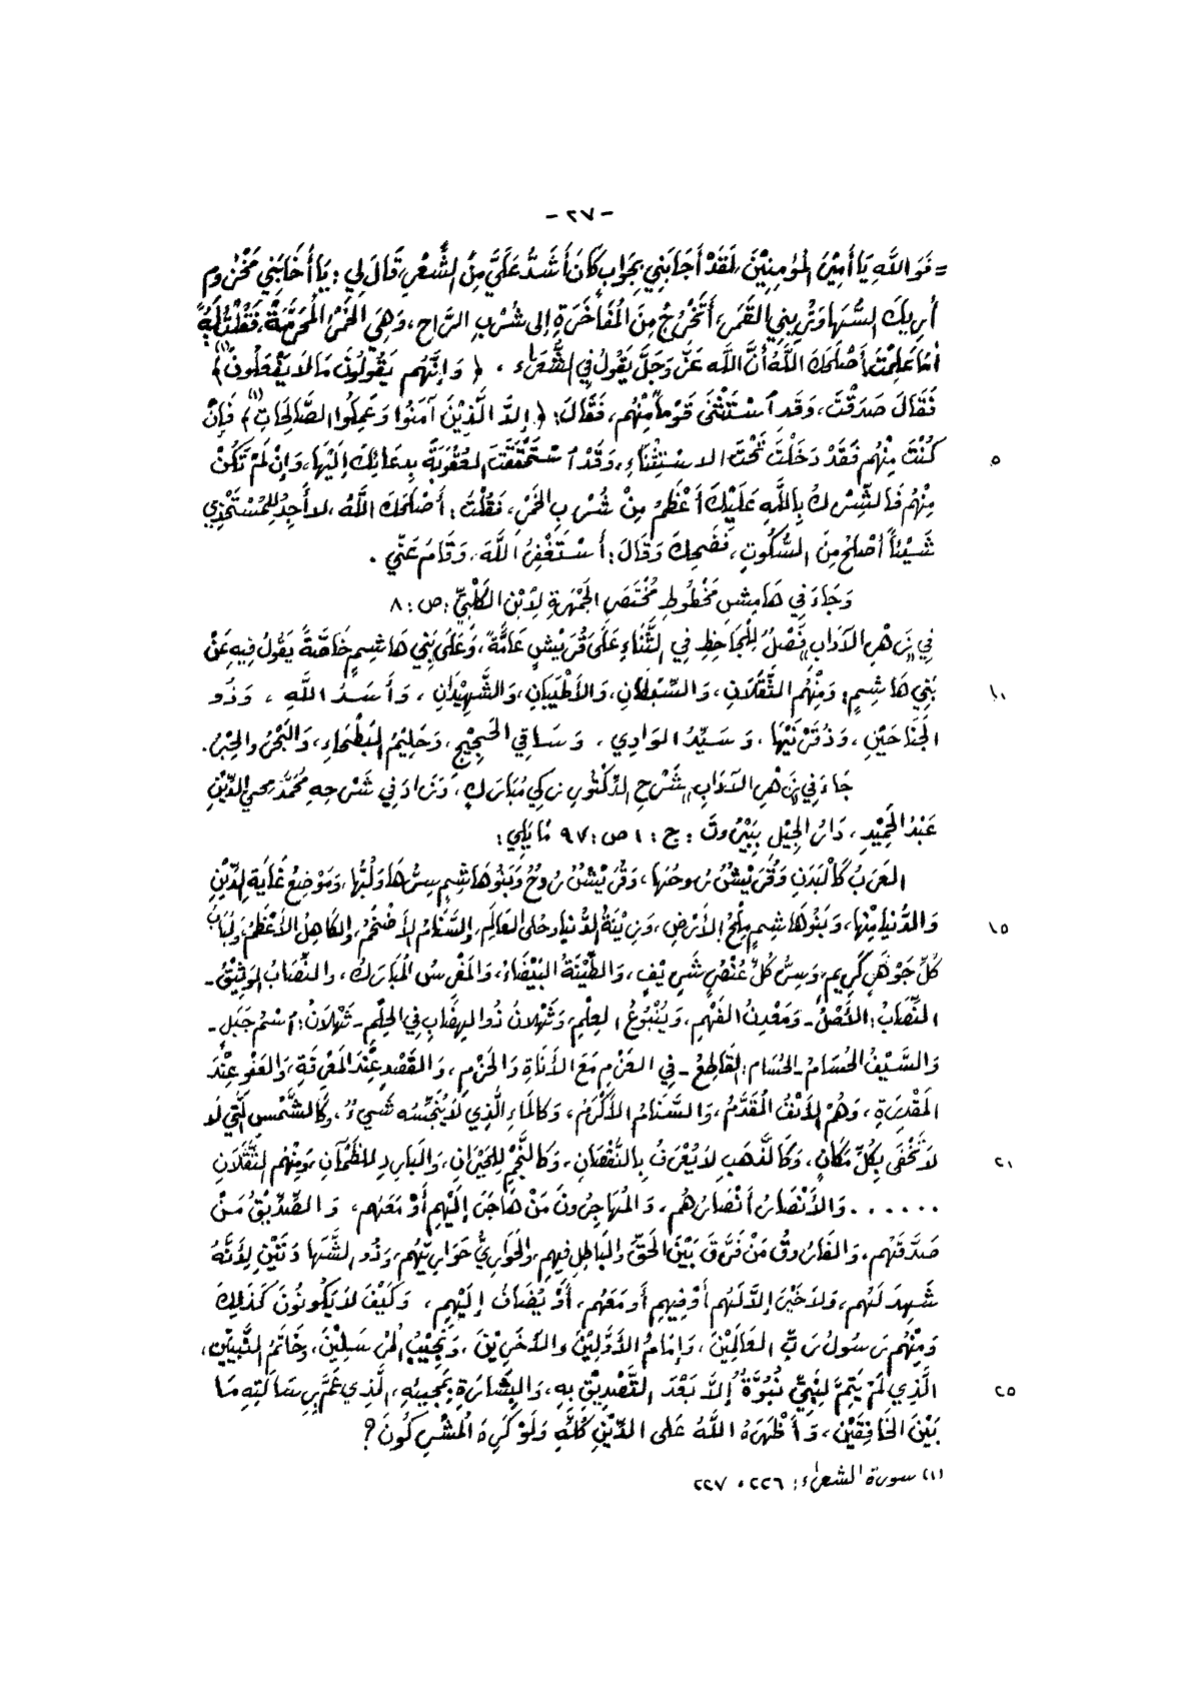 - ٢٧ -
= فَوَاللَّهِ يَا أَمِيْرَ المُؤمِنِيْنَ لَقَدْ أَجَابَنِي بِجَوَابٍ كَانَ أَشَدَّ عَلَيَّ مِنَ الشِّعْرِ، قَالَ لِي: يَا أَخَا بَنِي مَخْزُومٍ
أُرِيكَ السُّهَا وَتُرِينِي القَمَرَ، أَتَخْرُجُ مِنَ المُفَاخَرَةِ إلى شُرْبِ الرَّاحِ، وَهِيَ الخَمْرُ المُحَرَّمَةُ، فَقُلْتُ لَهُ
أمَا عَلِمْتَ أَصْلَحَكَ اللَّهُ أَنَّ اللَّه عَزَّ وَجَلَّ يَقُولُ فِي الشُّعَرَاءِ، ﴿ وَإِنَّهُم يَقُولُونَ مَا لَا يَفْعَلُونَ ﴾(١)
فَقَالَ صَدَقْتَ، وَقَد اسْتَثْنَى قَوْماً مِنْهُم، فَقَالَ: ﴿ إلَّا الَّذِيْنَ آمَنُوا وَعَمِلُوا الصَّالِحَاتِ(١) ﴾ فَإنْ
كُنْتَ مِنْهُم فَقَدْ دَخَلْتَ تَحْتَ الاسْتِثْنَاءِ، وَقَدْ اسْتَحْقَقْتَ العُقُوبَةَ بِدعَائِكَ إلَيْهَا، وَإنْ لَمْ تَكُنْ ٥
مِنْهُم فَالشِّرْكُ بِاللَّهِ عَلَيْكَ أعْظَمُ مِنْ شُرْبِ الخَمْرِ، فَقُلْتُ: أَصْلَحَكَ اللَّهُ، لا أَجِدُ لِلْمُسْتَخْذِي
شَيْئاً أصْلَحَ مِنَ السُّكُوتِ، فَضَحِكَ وَقَالَ: أَسْتَغْفِرُ اللَّهَ، وَقَامَ عَنِّي .
وَجَاءَ فِي هَامِشِ مَخْطُوطِ مُخْتَصَرِ الجَمْهَرَةِ لاِبْنِ الكَلْبِيِّ: ص: ٨
فِي "زَهْرِ الآدَابِ" فَصْلٌ لِلْجَاحِظِ فِي الثَّنَاءِ عَلَى قُرَيْشٍ عَامَّةً، وَعَلَى بَنِي هَاشِمٍ خَاصَّةً يَقُولُ فِيهِ عَنْ
بَنِي هَاشِمٍ: وَمِنْهُم الثَّقَلَانِ، وَالسِّبْطَانِ، وَالأَطْيَبَانِ، وَالشَّهِيْدَانِ، وَأَسَدُ اللَّهِ، وَذُو ١٠
الجَنَاحَيْنِ، وَذُو قَرْنَيْهَا، وَسَيِّدُ الوَادِي، وَسَاقِي الحَجِيْجِ، وَحَلِيْمُ البَطْحَاءِ، وَالبَحْرُ والحَبْرُ.
جَاءَ فِي "زَهْرِ الآدَابِ" شَرْحِ الدّكْتُورِ زَكِي مُبَارَكٍ، وَزَادَ فِي شَرْحِهِ مُحَمَّد محيي الدِّيْنِ
عَبْدُ الحَمِيْدِ، دَارُ الجِيْلِ بَيْرُوتَ: ج: ١ ص: ٩٧ مَا يَلِي:
العَرَبُ كَالْبَدَنِ وَقُرَيْشٌ رُوحُهَا، وَقُرَيْشٌ رُوحٌ وَبَنُوهَاشِمٍ سِرُّهَا وَلُبُّهَا، وَمَوْضِعُ غَايَةِ الدِّيْنِ
وَالدُّنْيَا مِنْهَا، وَبَنُو هَاشِمٍ مِلْحُ الأَرْضِ، وَزِيْنَةُ الدُّنْيَا وحُلَى العَالَمِ، والسَّنَامُ الأَضْخَمُ، والكَاهِلُ الأعْظَمُ وَلُبَابُ ١٥
كُلِّ جَوْهَرٍ كَرِيمٍ، وَسِرُّ كُلِّ عُنْصُرٍ شَرِيْفٍ، وَالطِّيْنَةُ البَيْضَاءُ، وَالمَغْرسُ المُبَارَكُ، والنِّصَابُ الوَثِيْقُ -
النِّصَابُ: الأصْلُ - وَمَعْدِنُ الفَهْمِ، وَيَنْبُوعُ العِلْمِ، وَثَهْلَانُ ذُو الهِضَابِ فِي الحِلْمِ - ثَهْلَانُ: اسْمُ جَبَلٍ -
وَالسَّيْفُ الحُسَامُ - الحُسَام: القَاطِعُ - فِي العَزْمِ مَعَ الأَنَاةِ وَالحَزْمِ، وَالقَصْدِ عِنْدَ المَعْرِفَةِ، وَالعَفْوِ عِنْدَ
المَقْدِرَةِ، وَهُمُ الأَنْفُ المُقَدَّمُ، وَالسَّنَامُ الأَكْرَمُ، وَكَالمَاءِ الَّذِي لَا يُنَجِّسُه شَيءٌ، وَكَالشَّمْسِ الَّتِي لَا
لَا تَخْفَى بِكُلِّ مَكَانٍ، وَكَالذَّهَبِ لَا يُعْرَفُ بِالنُّقْصَانِ، وَكَالنَّجْمِ لِلْحَيْرَانِ، وَالبَارِدِ للظَّمْآنِ، وَمِنْهُم الثَّقَلَانِ ٢١
...... وَالأَنْصَارُ أَنْصَارُهُم، وَالمُهَاجِرُونَ مَنْ هَاجَرَ إلَيْهِم أَوْ مَعَهُم، وَالصِّدِّيْقُ مَنْ
صَدَّقَهُم، وَالفَارُوقُ مَنْ فَرَّقَ بَيْنَ الحَقِّ والبَاطِلِ فِيهِم، والحَوَارِيُّ حَوَارِيّهُم، وَذُو الشَّهَادَتَيْنِ لِأَنَّهُ
شَهِدَ لَهُم، وَلَا خَيْرَ إلَّا لَهُم أَوْ فِيهِم أَو مَعَهُم، أَوْ يُضَافُ إلَيْهِم، وَكَيْفَ لَا يَكُونُونَ كَذَلِكَ
وَمِنْهُم رَسُولُ رَبِّ العَالَمِيْنَ، وَإِمَامُ الأَوَّلِيْنَ والآخَرِيْنَ، وَنَجِيْبُ المُرْسَلِيْنَ، وَخَاتَمُ النَّبِيِّيْنَ،
الَّذِي لَمْ يَتِمَّ لِنَبِيٍّ نُبُوَّةٌ إلاَّ بَعْدَ التَّصْدِيْقِ بِهِ، وَالبِشَارَةِ بِمَجِيئِهِ، الَّذِي عَمَّ بِرِسَالَتِهِ مَا ٢٥
بَيْنَ الخَافِقَيْنِ، وَأَظْهَرَهُ اللَّهُ عَلى الدِّيْنِ كُلِّهِ وَلَوْ كَرِهَ المُشْرِكُونَ؟
(١) سورة الشعراء: ٢٢٦، ٢٢٧